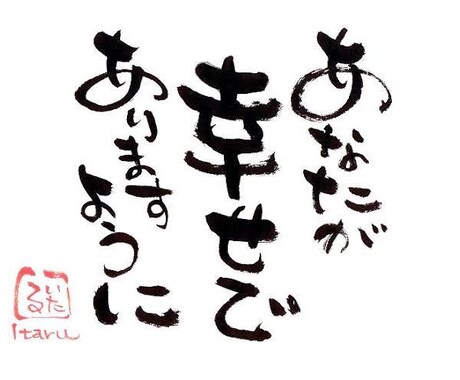 あなたが
幸せで
あります
ように
いたる
Itaru